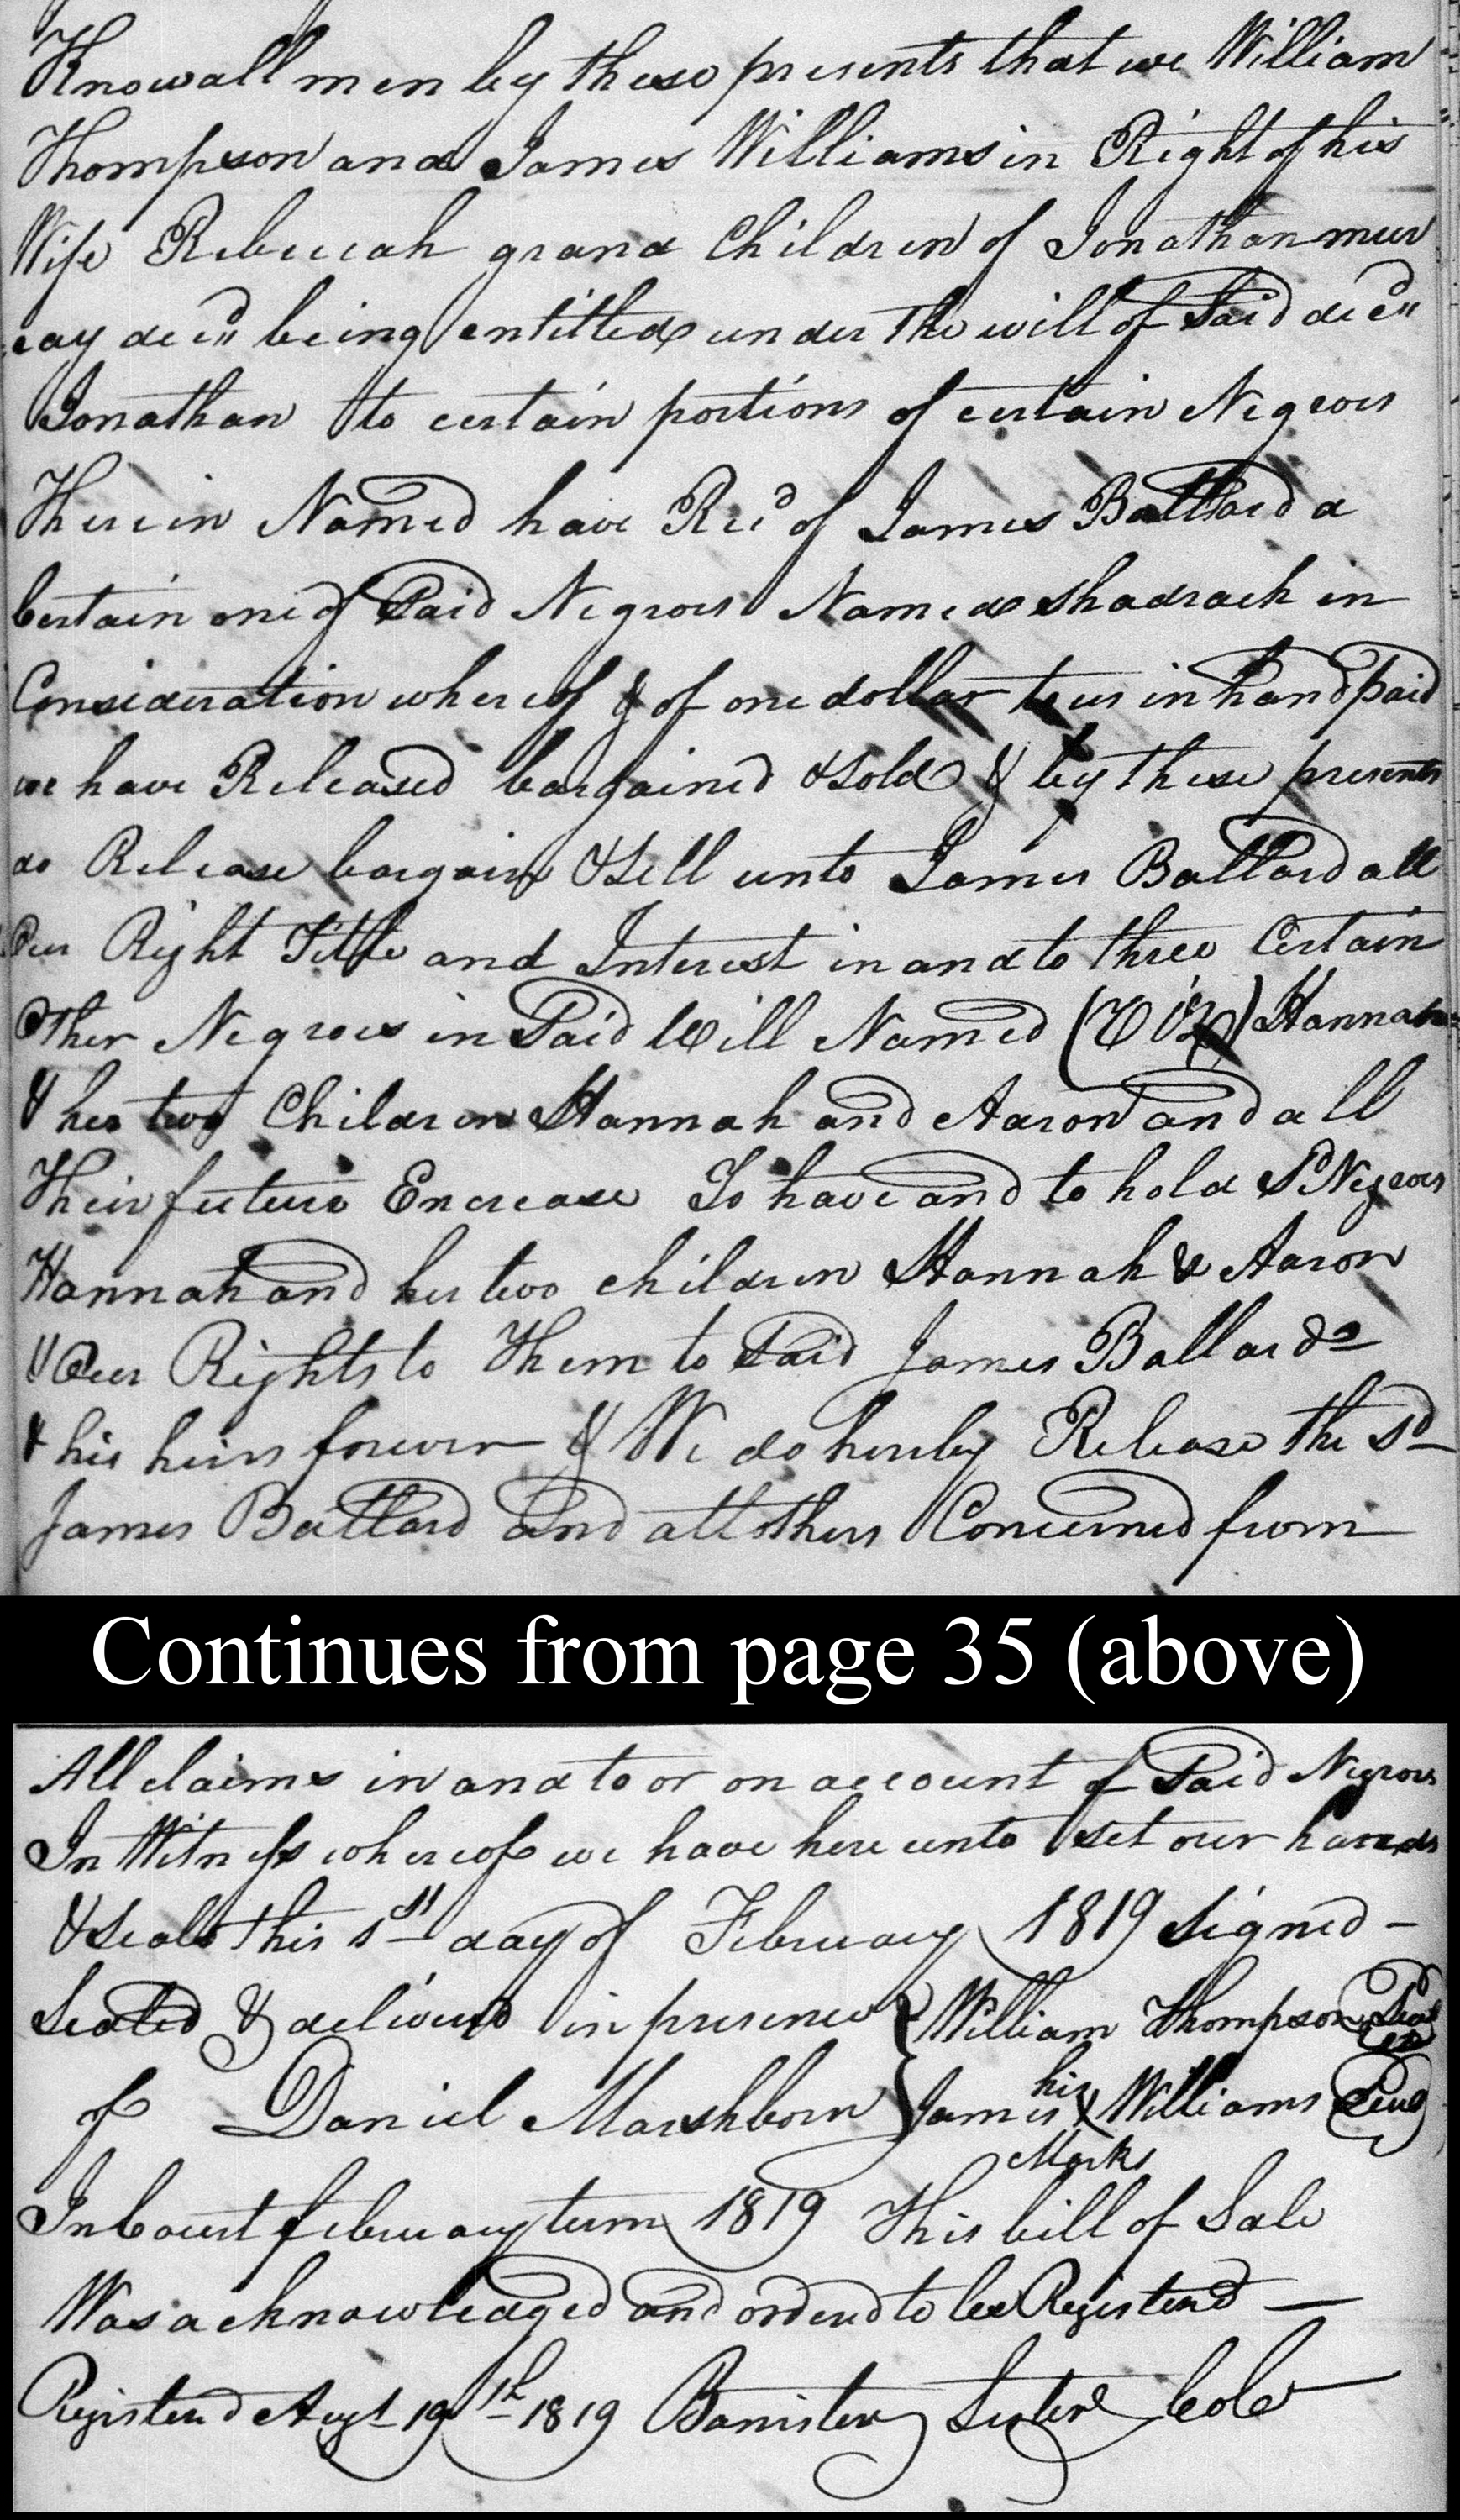 Know all men by these presents that we William
Thompson and James Williams in Right of his
Wife Rebeccah grand Children of Jonathan mur
ray decd being entitled under the will of Said decd
Jonathan to certain portions of certain Negroes
Therein Named have Recd of James Ballard a
Certain one of Said Negroes Named Shadrach in
Consideration whereof & of one dollar to us in hand paid
we have Released bargained & sold & by these presents
do Release bargain & Sell unto James Ballard all
Our Right Title and Interest in and to three Certain
Other Negroes in Said Will Named (Viz) Hannah
& her two Children Hannah and Aaron and all
Their future Encrease To have and to hold Sd Negroes
Hannah and her two children Hannah & Aaron
& Our Rights to Them to Said James Ballard
& his heirs forever & We do hereby Release the sd
James Ballard and all others Concerned from
Continues from page 35 (above)
All claims in and to or on account of Said Negroes
In Witness whereof we have here unto set our hands
& Seals this 1st day of February 1819 Signed
Sealed & delivered in presence } William Thompson Seal
of Daniel Mashborn } James his X Williams Seal
Mark
In Court february term 1819 This bill of Sale
Was acknowledged and ordered to be Registered
Registered Augt 19th 1819 Banister Lester